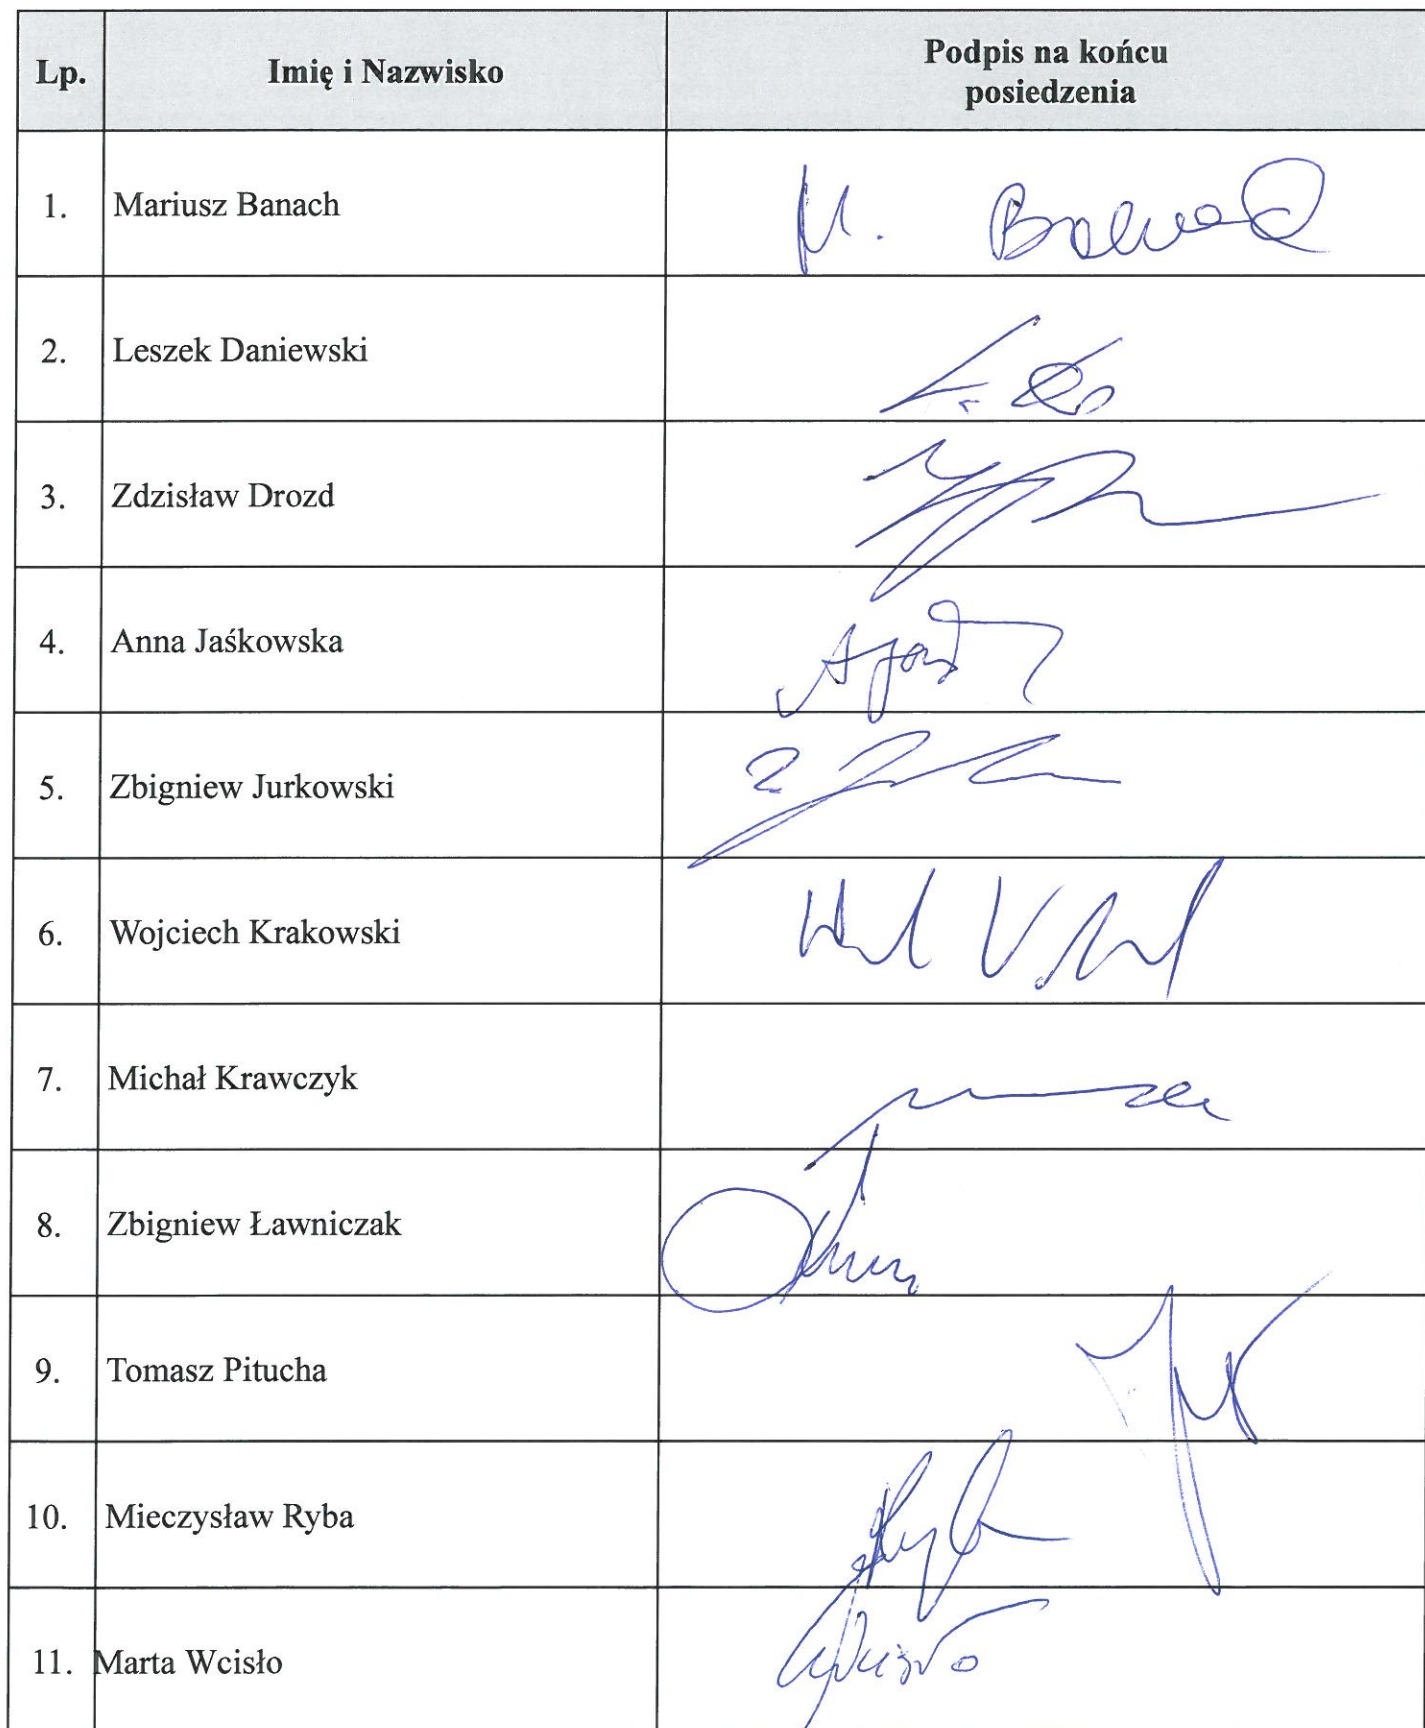 Lp. Imię i Nazwisko Podpis na końcu
posiedzenia
1. Mariusz Banach M. Banach
2. Leszek Daniewski
3. Zdzisław Drozd
4. Anna Jaśkowska
5. Zbigniew Jurkowski
6. Wojciech Krakowski
7. Michał Krawczyk
8. Zbigniew Ławniczak
9. Tomasz Pitucha
10. Mieczysław Ryba Ryba
11. Marta Wcisło Wcisło